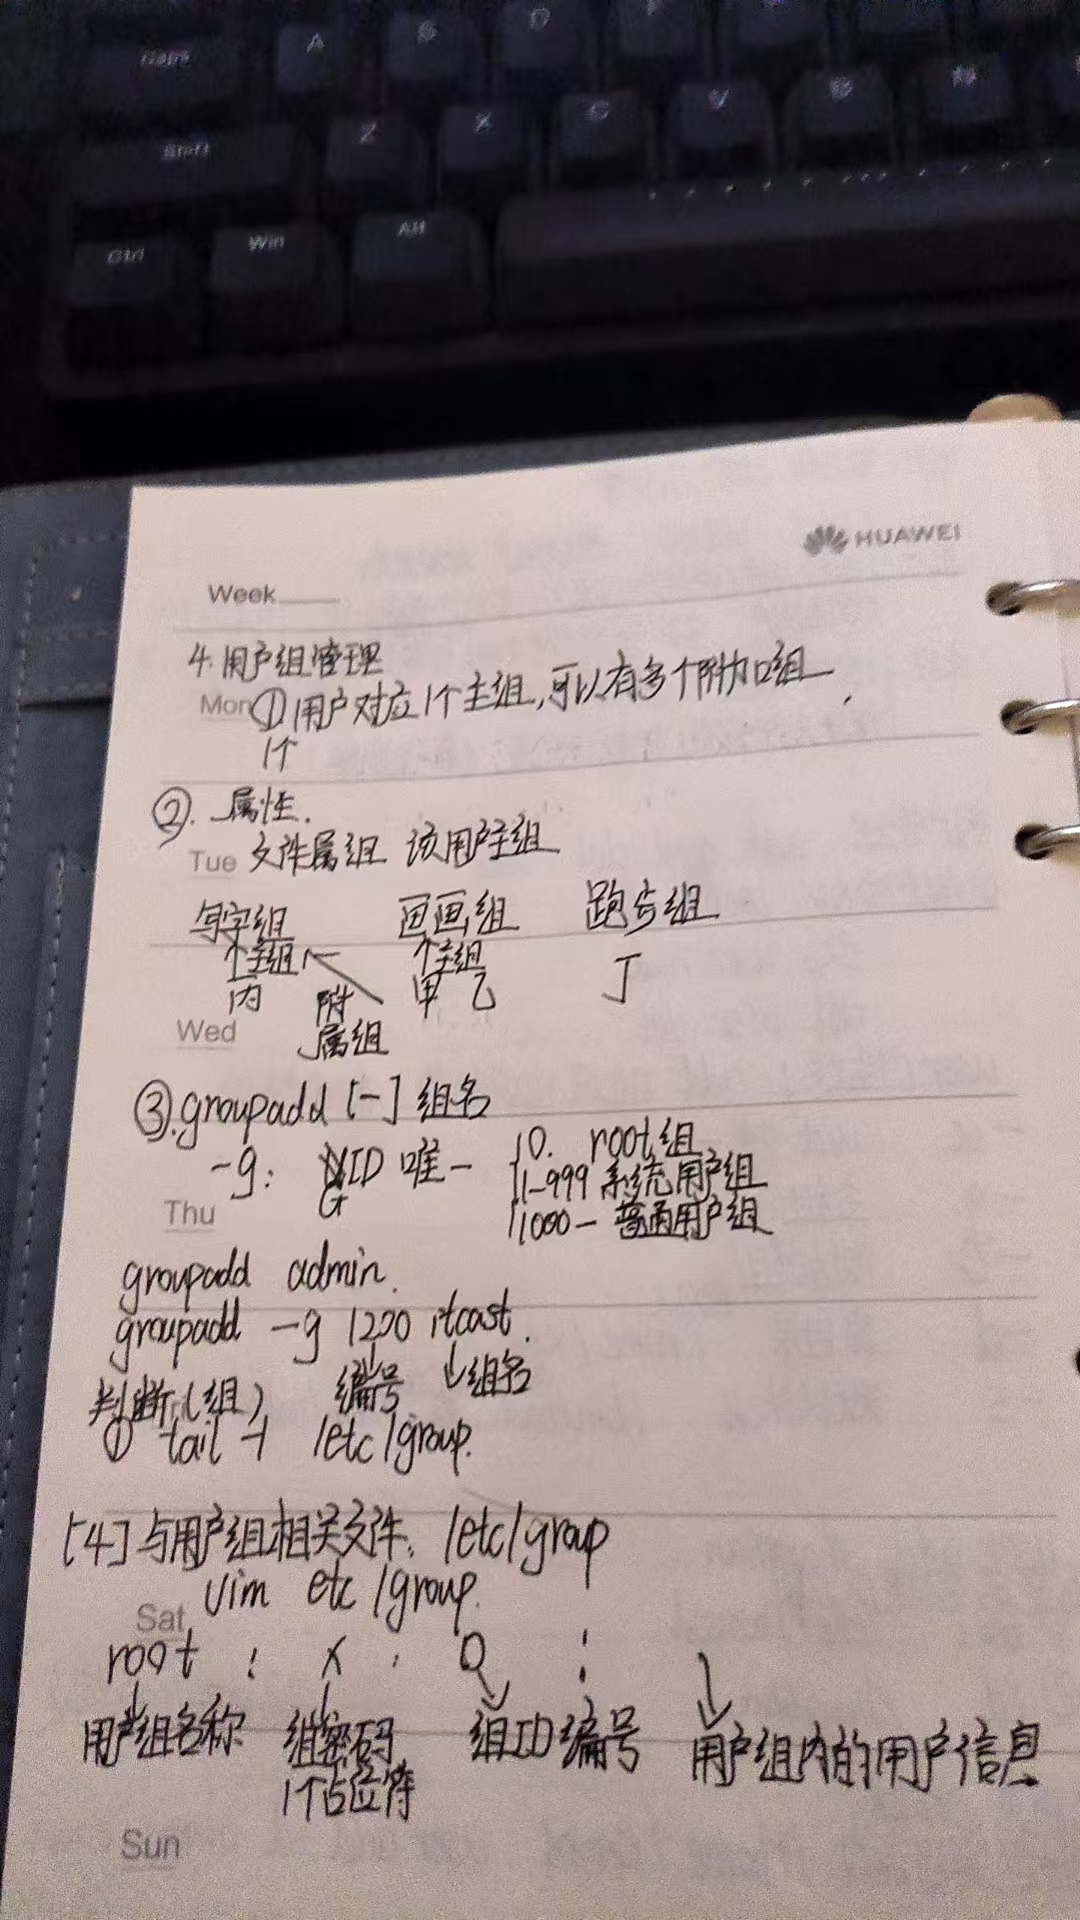 Caps A S D F
Shift Z X C V B N
Ctrl Win Alt
HUAWEI
Week
4.用户组管理
Mon ①用户对应1个主组,可以有多个附加组
1个
②.属性.
Tue 文件属组 该用户主组
写字组 画画组 跑步组
个主组 个主组
丙 附 甲 乙 丁
Wed 属组
③.groupadd [-] 组名
-g: GID 唯一 0. root组
1-999 系统用户组
Thu 1000- 普通用户组
groupadd admin.
groupadd -g 1200 itcast.
编号 组名
判断(组)
① tail -1 /etc/group.
[4]与用户组相关文件: /etc/group
vim etc/group.
Sat
root : x : 0 :
用户组名称 组密码 组ID编号 用户组内的用户信息
1个占位符
Sun